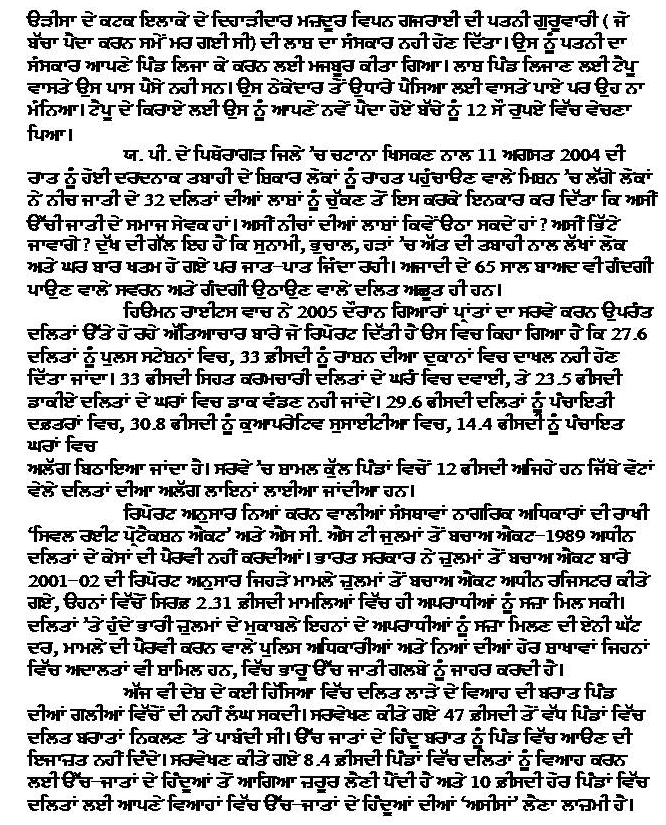 ਉੜੀਸਾ ਦੇ ਕਟਕ ਇਲਾਕੇ ਦੇ ਦਿਹਾੜੀਦਾਰ ਮਜ਼ਦੂਰ ਵਿਪਨ ਗਜਰਾਈ ਦੀ ਪਤਨੀ ਗੁਰੂਵਾਰੀ ( ਜੋ
ਬੱਚਾ ਪੈਦਾ ਕਰਨ ਸਮੇਂ ਮਰ ਗਈ ਸੀ) ਦੀ ਲਾਸ਼ ਦਾ ਸੰਸਕਾਰ ਨਹੀ ਹੋਣ ਦਿੱਤਾ। ਉਸ ਨੂੰ ਪਤਨੀ ਦਾ
ਸੰਸਕਾਰ ਆਪਣੇ ਪਿੰਡ ਲਿਜਾ ਕੇ ਕਰਨ ਲਈ ਮਜਬੂਰ ਕੀਤਾ ਗਿਆ। ਲਾਸ਼ ਪਿੰਡ ਲਿਜਾਣ ਲਈ ਟੈਪੂ
ਵਾਸਤੇ ਉਸ ਪਾਸ ਪੈਸੇ ਨਹੀ ਸਨ। ਉਸ ਠੇਕੇਦਾਰ ਤੋਂ ਉਧਾਰੇ ਪੈਸਿਆ ਲਈ ਵਾਸਤੇ ਪਾਏ ਪਰ ਉਹ ਨਾ
ਮੰਨਿਆ। ਟੈਪੂ ਦੇ ਕਿਰਾਏ ਲਈ ਉਸ ਨੂੰ ਆਪਣੇ ਨਵੇਂ ਪੈਦਾ ਹੋਏ ਬੱਚੇ ਨੂੰ 12 ਸੌ ਰੁਪਏ ਵਿੱਚ ਵੇਚਣਾ
ਪਿਆ।
ਯ. ਪੀ. ਦੇ ਪਿਥੋਰਾਗੜ ਜਿਲੇ 'ਚ ਚਟਾਨਾ ਖਿਸਕਣ ਨਾਲ 11 ਅਗਸਤ 2004 ਦੀ
ਰਾਤ ਨੂੰ ਹੋਈ ਦਰਦਨਾਕ ਤਬਾਹੀ ਦੇ ਸ਼ਿਕਾਰ ਲੋਕਾਂ ਨੂੰ ਰਾਹਤ ਪਹੁੰਚਾਉਣ ਵਾਲੇ ਮਿਸ਼ਨ 'ਚ ਲੱਗੇ ਲੋਕਾਂ
ਨੇ ਨੀਚ ਜਾਤੀ ਦੇ 32 ਦਲਿਤਾਂ ਦੀਆਂ ਲਾਸ਼ਾਂ ਨੂੰ ਚੁੱਕਣ ਤੋਂ ਇਸ ਕਰਕੇ ਇਨਕਾਰ ਕਰ ਦਿੱਤਾ ਕਿ ਅਸੀਂ
ਉੱਚੀ ਜਾਤੀ ਦੇ ਸਮਾਜ ਸੇਵਕ ਹਾਂ। ਅਸੀਂ ਨੀਚਾਂ ਦੀਆਂ ਲਾਸ਼ਾਂ ਕਿਵੇਂ ਉਠਾ ਸਕਦੇ ਹਾਂ ? ਅਸੀਂ ਭਿੱਟੇ
ਜਾਵਾਗੇ ? ਦੁੱਖ ਦੀ ਗੱਲ ਇਹ ਹੈ ਕਿ ਸੁਨਾਮੀ, ਭੁਚਾਲ, ਹੜਾਂ 'ਚ ਅੱਤ ਦੀ ਤਬਾਹੀ ਨਾਲ ਲੱਖਾਂ ਲੋਕ
ਅਤੇ ਘਰ ਬਾਰ ਖਤਮ ਹੋ ਗਏ ਪਰ ਜਾਤ-ਪਾਤ ਜਿੰਦਾ ਰਹੀ। ਅਜ਼ਾਦੀ ਦੇ 65 ਸਾਲ ਬਾਅਦ ਵੀ ਗੰਦਗੀ
ਪਾਉਣ ਵਾਲੇ ਸਵਰਨ ਅਤੇ ਗੰਦਗੀ ਉਠਾਉਣ ਵਾਲੇ ਦਲਿਤ ਅਛੂਤ ਹੀ ਹਨ।
ਹਿਊਮਨ ਰਾਈਟਸ ਵਾਚ ਨੇ 2005 ਦੌਰਾਨ ਗਿਆਰਾਂ ਪ੍ਰਾਂਤਾਂ ਦਾ ਸਰਵੇ ਕਰਨ ਉਪਰੰਤ
ਦਲਿਤਾਂ ਉੱਤੇ ਹੋ ਰਹੇ ਅੱਤਿਆਚਾਰ ਬਾਰੇ ਜੋ ਰਿਪੋਰਟ ਦਿੱਤੀ ਹੈ ਉਸ ਵਿਚ ਕਿਹਾ ਗਿਆ ਹੈ ਕਿ 27.6
ਦਲਿਤਾਂ ਨੂੰ ਪੁਲਸ ਸਟੇਸ਼ਨਾਂ ਵਿਚ, 33 ਫ਼ੀਸਦੀ ਨੂੰ ਰਾਸ਼ਨ ਦੀਆ ਦੁਕਾਨਾਂ ਵਿਚ ਦਾਖਲ ਨਹੀ ਹੋਣ
ਦਿੱਤਾ ਜਾਂਦਾ। 33 ਫੀਸਦੀ ਸਿਹਤ ਕਰਮਚਾਰੀ ਦਲਿਤਾਂ ਦੇ ਘਰੰ ਵਿਚ ਦਵਾਈ, ਤੇ 23.5 ਫੀਸਦੀ
ਡਾਕੀਏ ਦਲਿਤਾਂ ਦੇ ਘਰਾਂ ਵਿਚ ਡਾਕ ਵੰਡਣ ਨਹੀ ਜਾਂਦੇ। 29.6 ਫੀਸਦੀ ਦਲਿਤਾਂ ਨੂੰ ਪੰਚਾਇਤੀ
ਦਫ਼ਤਰਾਂ ਵਿਚ, 30.8 ਫੀਸਦੀ ਨੂੰ ਕੁਆਪਰੇਟਿਵ ਸੁਸਾਈਟੀਆ ਵਿਚ, 14.4 ਫੀਸਦੀ ਨੂੰ ਪੰਚਾਇਤ
ਘਰਾਂ ਵਿਚ
ਅਲੱਗ ਬਿਠਾਇਆ ਜਾਂਦਾ ਹੈ। ਸਰਵੇ 'ਚ ਸ਼ਾਮਲ ਕੁੱਲ ਪਿੰਡਾਂ ਵਿਚੋਂ 12 ਫੀਸਦੀ ਅਜਿਹੇ ਹਨ ਜਿੱਥੇ ਵੋਟਾਂ
ਵੇਲੇ ਦਲਿਤਾਂ ਦੀਆ ਅਲੱਗ ਲਾਇਨਾਂ ਲਾਈਆ ਜਾਂਦੀਆ ਹਨ।
ਰਿਪੋਰਟ ਅਨੁਸਾਰ ਨਿਆਂ ਕਰਨ ਵਾਲੀਆਂ ਸੰਸਥਾਵਾਂ ਨਾਗਰਿਕ ਅਧਿਕਾਰਾਂ ਦੀ ਰਾਖੀ
'ਸਿਵਲ ਰਈਟ ਪ੍ਰੋਟੈਕਸ਼ਨ ਐਕਟ' ਅਤੇ ਐਸ ਸੀ. ਐਸ ਟੀ ਜੁਲਮਾਂ ਤੋਂ ਬਚਾਅ ਐਕਟ-1989 ਅਧੀਨ
ਦਲਿਤਾਂ ਦੇ ਕੇਸਾਂ ਦੀ ਪੈਰਵੀ ਨਹੀਂ ਕਰਦੀਆਂ। ਭਾਰਤ ਸਰਕਾਰ ਨੇ ਜ਼ੁਲਮਾਂ ਤੋਂ ਬਚਾਅ ਐਕਟ ਬਾਰੇ
2001-02 ਦੀ ਰਿਪੋਰਟ ਅਨੁਸਾਰ ਜਿਹੜੇ ਮਾਮਲੇ ਜ਼ੁਲਮਾਂ ਤੋਂ ਬਚਾਅ ਐਕਟ ਅਧੀਨ ਰਜਿਸਟਰ ਕੀਤੇ
ਗਏ, ਉਹਨਾਂ ਵਿੱਚੋਂ ਸਿਰਫ਼ 2.31 ਫ਼ੀਸਦੀ ਮਾਮਲਿਆਂ ਵਿੱਚ ਹੀ ਅਪਰਾਧੀਆਂ ਨੂੰ ਸਜ਼ਾ ਮਿਲ ਸਕੀ।
ਦਲਿਤਾਂ 'ਤੇ ਹੁੰਦੇ ਭਾਰੀ ਜ਼ੁਲਮਾਂ ਦੇ ਮੁਕਾਬਲੇ ਇਹਨਾਂ ਦੇ ਅਪਰਾਧੀਆਂ ਨੂੰ ਸਜ਼ਾ ਮਿਲਣ ਦੀ ਏਨੀ ਘੱਟ
ਦਰ, ਮਾਮਲੇ ਦੀ ਪੈਰਵੀ ਕਰਨ ਵਾਲੇ ਪੁਲਿਸ ਅਧਿਕਾਰੀਆਂ ਅਤੇ ਨਿਆਂ ਦੀਆਂ ਹੋਰ ਸ਼ਾਖਾਵਾਂ ਜਿਹਨਾਂ
ਵਿੱਚ ਅਦਾਲਤਾਂ ਵੀ ਸ਼ਾਮਿਲ ਹਨ, ਵਿੱਚ ਭਾਰੂ ਉੱਚ ਜਾਤੀ ਗਲਬੇ ਨੂੰ ਜਾਹਰ ਕਰਦੀ ਹੈ।
ਅੱਜ ਵੀ ਦੇਸ਼ ਦੇ ਕਈ ਹਿੱਸਿਆ ਵਿੱਚ ਦਲਿਤ ਲਾੜੇ ਦੇ ਵਿਆਹ ਦੀ ਬਰਾਤ ਪਿੰਡ
ਦੀਆਂ ਗਲੀਆਂ ਵਿੱਚੋਂ ਦੀ ਨਹੀਂ ਲੰਘ ਸਕਦੀ। ਸਰਵੇਖਣ ਕੀਤੇ ਗਏ 47 ਫ਼ੀਸਦੀ ਤੋਂ ਵੱਧ ਪਿੰਡਾਂ ਵਿੱਚ
ਦਲਿਤ ਬਰਾਤਾਂ ਨਿਕਲਣ 'ਤੇ ਪਾਬੰਦੀ ਸੀ। ਉੱਚ ਜਾਤਾਂ ਦੇ ਹਿੰਦੂ ਬਰਾਤ ਨੂੰ ਪਿੰਡ ਵਿੱਚ ਆਉਣ ਦੀ
ਇਜਾਜ਼ਤ ਨਹੀਂ ਦਿੰਦੇ। ਸਰਵੇਖਣ ਕੀਤੇ ਗਏ 8.4 ਫ਼ੀਸਦੀ ਪਿੰਡਾਂ ਵਿੱਚ ਦਲਿਤਾਂ ਨੂੰ ਵਿਆਹ ਕਰਨ
ਲਈ ਉੱਚ-ਜਾਤਾਂ ਦੇ ਹਿੰਦੂਆਂ ਤੋਂ ਆਗਿਆ ਜ਼ਰੂਰ ਲੈਣੀ ਪੈਂਦੀ ਹੈ ਅਤੇ 10 ਫ਼ੀਸਦੀ ਹੋਰ ਪਿੰਡਾਂ ਵਿੱਚ
ਦਲਿਤਾਂ ਲਈ ਆਪਣੇ ਵਿਆਹਾਂ ਵਿੱਚ ਉੱਚ-ਜਾਤਾਂ ਦੇ ਹਿੰਦੂਆਂ ਦੀਆਂ 'ਅਸੀਸਾਂ' ਲੈਣਾ ਲਾਜ਼ਮੀ ਹੈ।